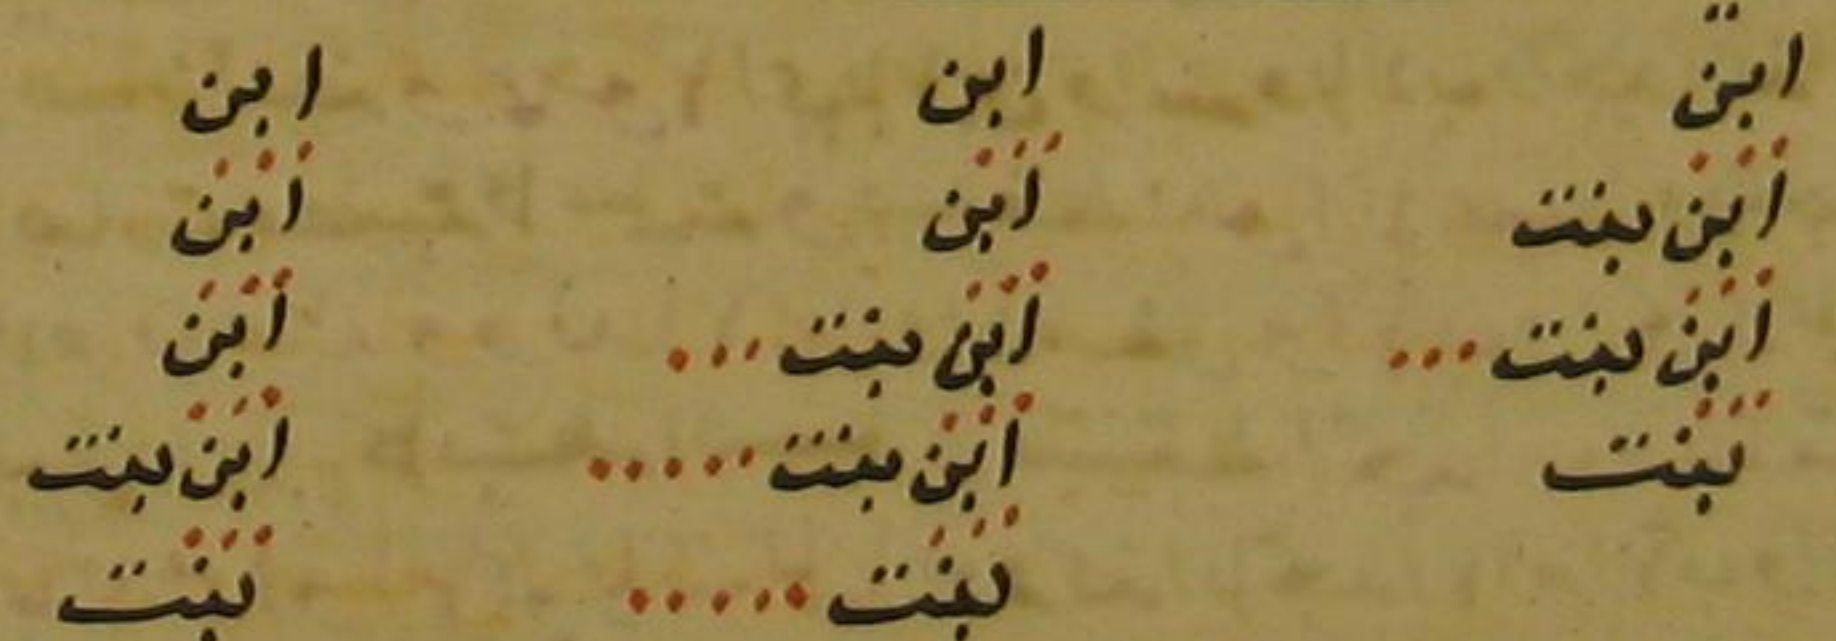 ابن
ابن بنت
ابن بنت
بنت
ابن
ابن
ابن بنت
ابن بنت
بنت
ابن
ابن
ابن
ابن بنت
بنت